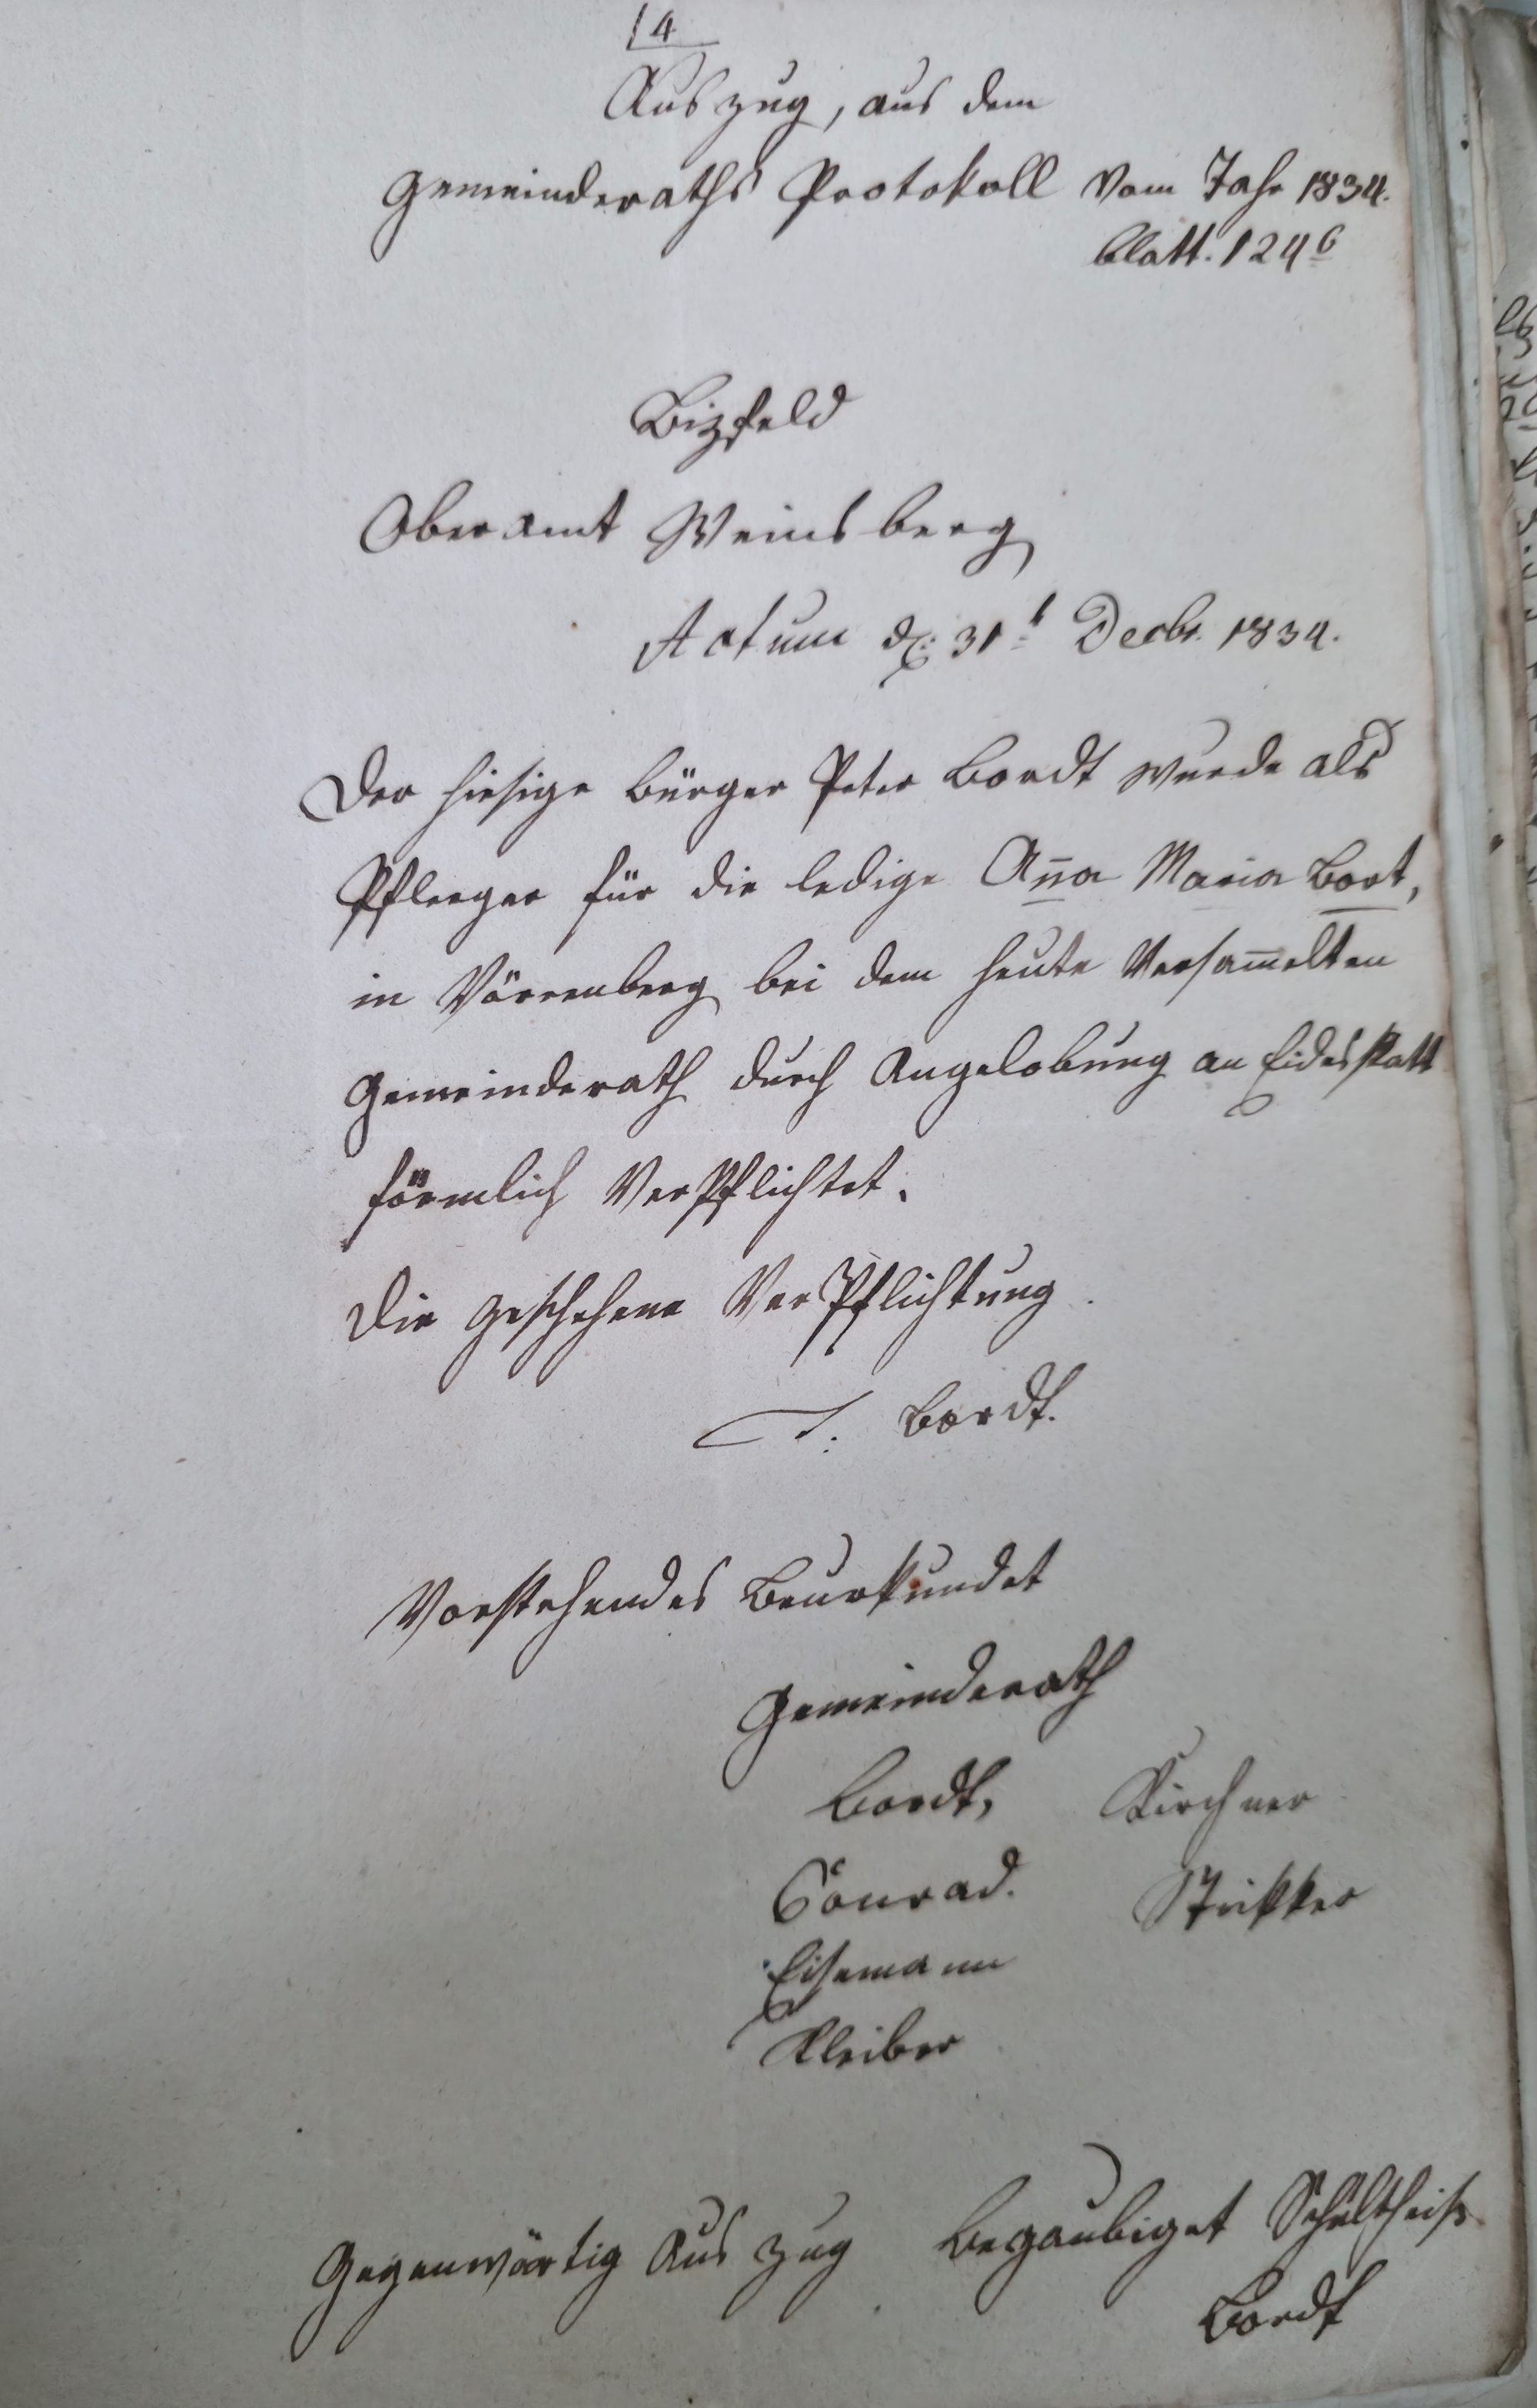 4
Auszug, aus dem
Gemeinderaths Protokoll vom Jahr 1834.
Blatt. 124 b
Bizfeld
Oberamt Weinsberg
Actum d. 31t Decbr. 1834.
Der hiesige Bürger Peter Bordt wurde als
Pfleeger für die ledige Am̄a Maria Bort,
in Vörrenberg bei dem heute Versam̄elten
Gemeinderath durch Angelobung an Eidesstatt
förmlich VerPflichtet.
Die geschehene VerPflichtung
T. Bordt.
Vorstehendes Beurkundet
Gemeinderath
Bordt, Kirchner
Conrad.
Eisemann
Kleiber
Gegenwärtig Auszug Begaubiget Schultheiß
Bordt